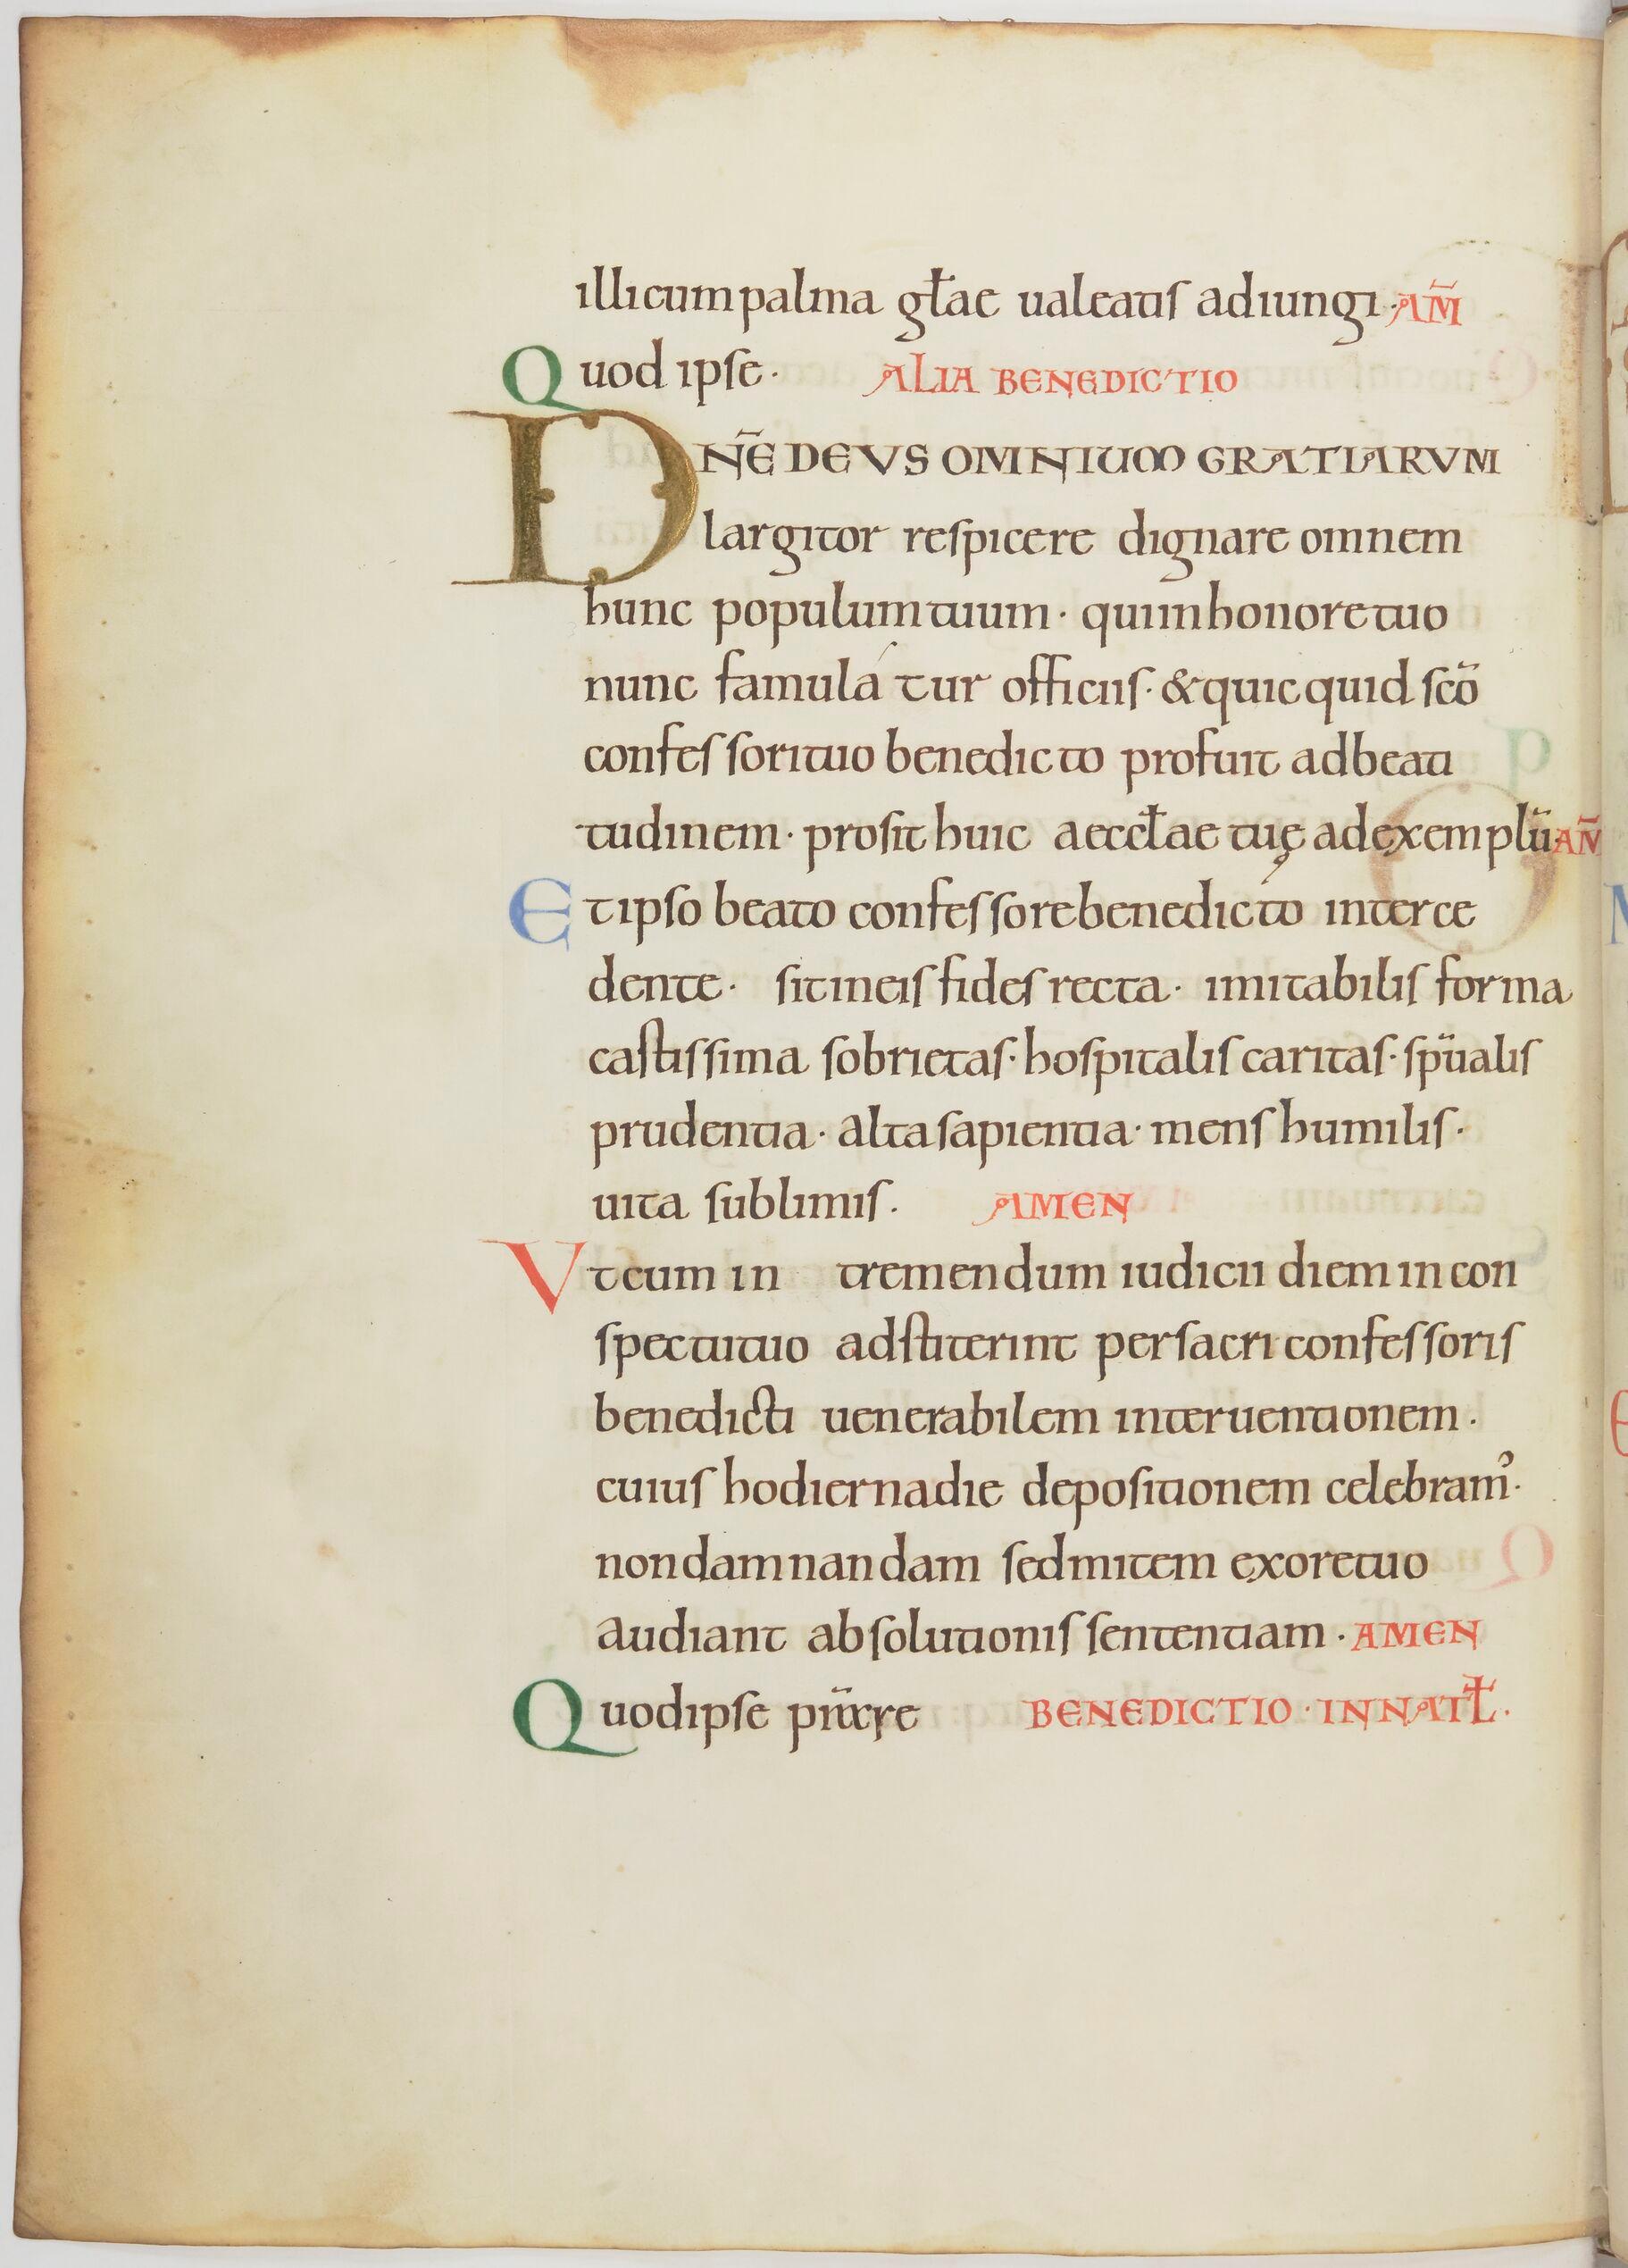 illicum palma gƚae ualeatis adiungi· AM̃
Quod ipse· ALIA BENEDICTIO
DNẼ DEVS OMNIUM GRATIARVM
largitor respicere dignare omnem
hunc populum tuum· qui in honore tuo
nunc famulátur officiis· & quicquid scõ
confessori tuo benedicto profuit ad beati
tudinem· prosit huic aeccƚae tuę ad exemplũ AÑ
Et ipso beato confessore benedicto interce
dente· sit in eis fides recta· imitabilis forma
castissima sobrietas· hospitalis caritas· spũalis
prudentia· alta sapientia· mens humilis·
uita sublimis· AMEN
Vt cum in tremendum iudicii diem in con
spectu tuo adstiterint per sacri confessoris
benedicti uenerabilem interuentionem·
cuius hodierna die depositionem celebramꝰ·
non damnandam sed mitem ex ore tuo
audiant absolutionis sententiam· AMEN
Quod ipse BENEDICTIO· IN NATƚ·